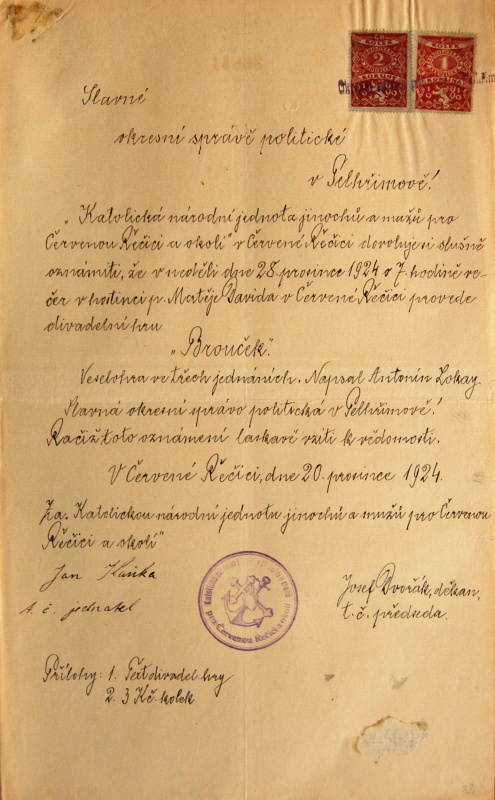 Slavné
okresní správě politické
v Pelhřimově!
„Katolická národní jednota jinochů a mužů pro
Červenou Řečici a okolí" v Červené Řečici dovoluje si slušně
oznámiti, že v neděli dne 28. prosince 1924 o 7. hodině ve-
čer v hostinci p. Matěje Davida v Červené Řečici provede
divadelní hru
„Brouček".
Veselohra ve třech jednáních. Napsal Antonín Lokay.
Slavná okresní správo politická v Pelhřimově!
Račiž toto oznámení laskavě vzíti k vědomosti.
V Červené Řečici, dne 20. prosince 1924.
Za „Katolickou národní jednotu jinochů a mužů pro Červenou
Řečici a okolí"
Jan
t. č. jednatel
Josef Dvořák, děkan,
t. č. předseda.
pro Červenou Řečici a okolí
Přílohy: 1. Text divadel. hry
2. 3 Kč. kolek
KOLEK
2
KORUNA
KOLEK
1
KORUNA